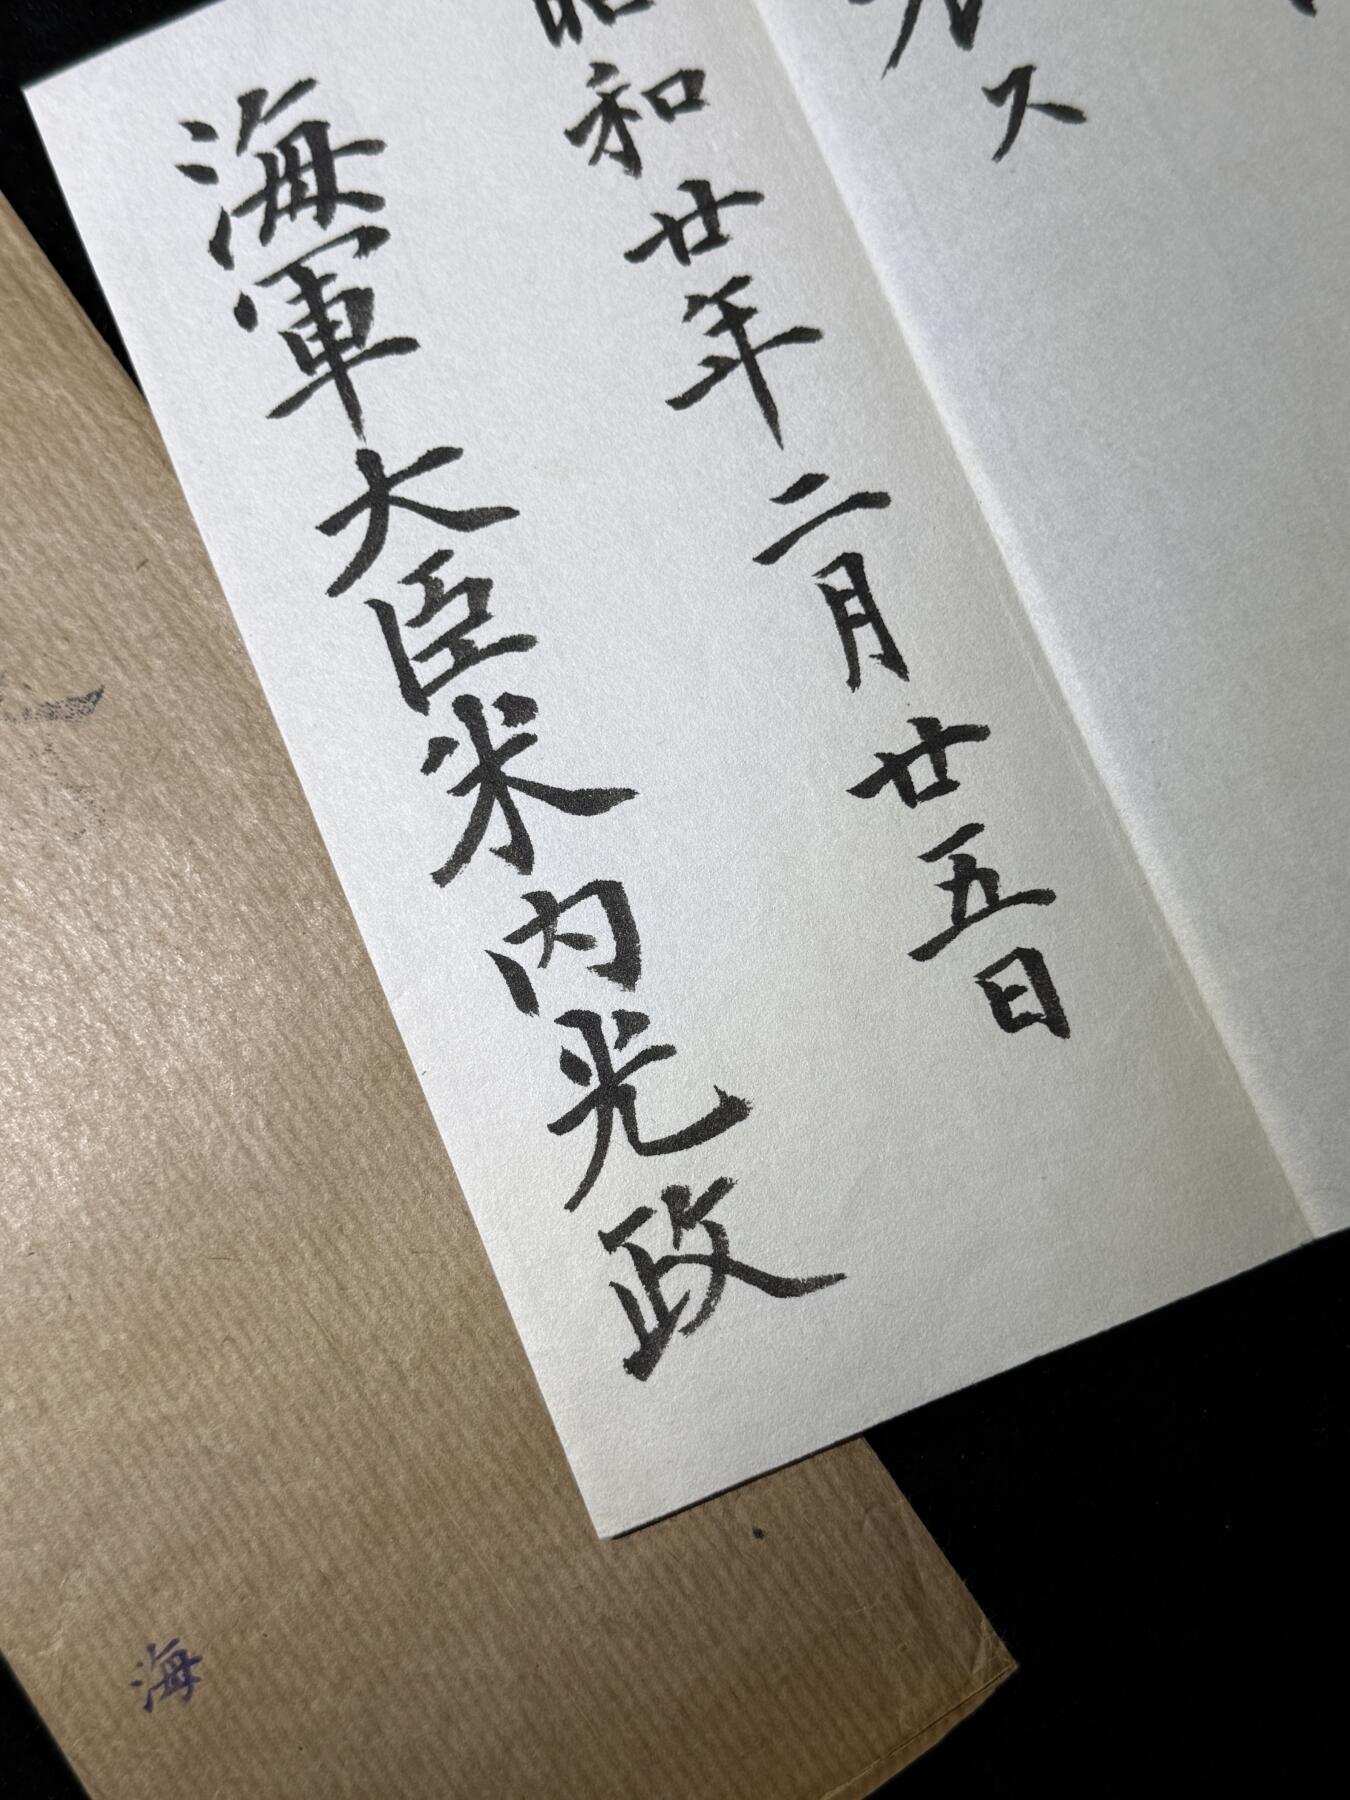 ス
昭和廿年二月廿五日
海軍大臣米内光政
海